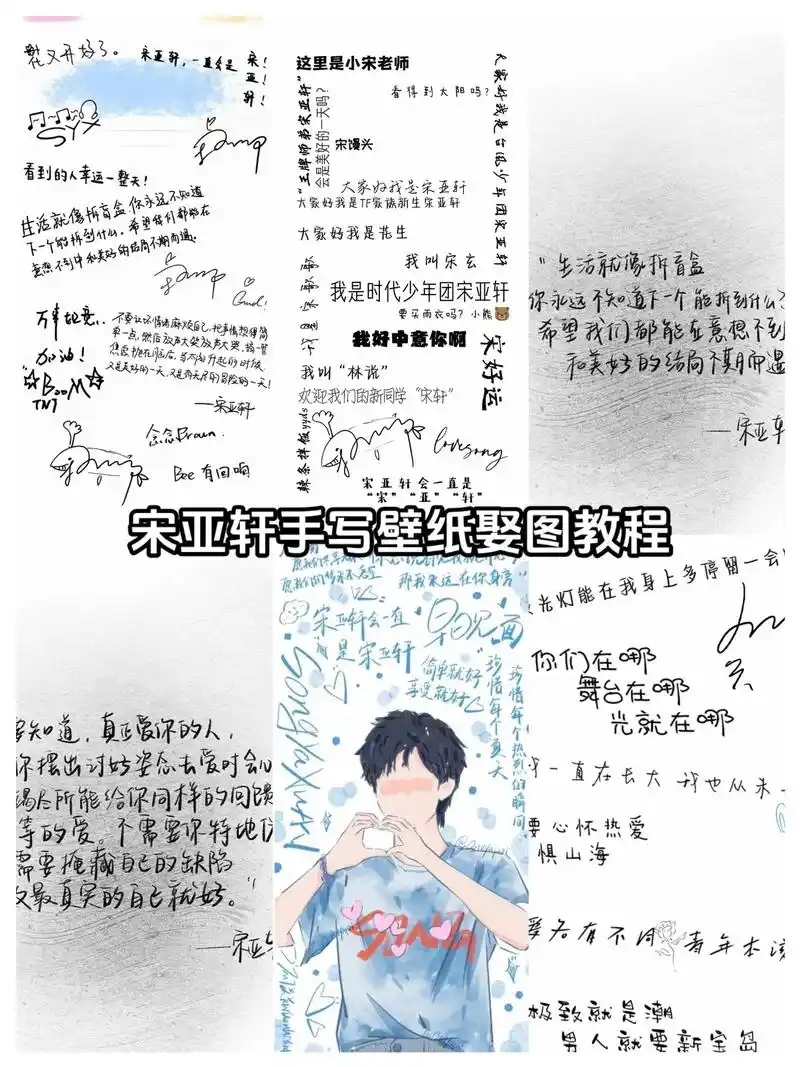 繁花又开好了。
宋亚轩，一直会是
宋！
亚！
轩！
SYX
看到的人幸运一整天！
生活就像拆盲盒，你永远不知道
下一个能拆到什么。希望我们都能在
意想不到中和美好的结局不期而遇。
万事坦意..
加油！
☆BooM☆
TNT
不要让坏情绪麻烦自己，把事情想得简
单一点，然后放声大笑
又是美好的一天，又是勇气冒险的一天！
——宋亚轩
念念Brown.
Bee有回响
这里是小宋老师
看得到太阳吗？
"王牌师弟宋亚轩"
会是美好的一天吗？
宋馒头
大家好我是台风少年团宋亚轩
大家好我是宋亚轩
大家好我是TF家族新生宋亚轩
大家好我是花生
我叫宋玄
我是时代少年团宋亚轩
要买雨衣吗？小熊🐻
我好中意你啊
宋好运
我叫"林说"
欢迎我们的新同学"宋轩"
辣条拌饭yyds
lovesong
宋亚轩会一直是
"宋""亚""轩"
"生活就像拆盲盒
你永远不知道下一个能拆到什么？
希望我们都能在意想不到
和美好的结局不期而遇
——宋亚轩
宋亚轩手写壁纸娶图教程
知道，真正爱你的人，
你摆出讨好姿态去爱时会心
竭尽所能给你同样的回馈
等的爱。不需要你特地伪
需要掩藏自己的缺陷
最真实的自己就好。"
——宋亚轩
那我永远在你身旁"
宋亚轩会一直
是宋亚轩
早日见面
简单就好
享受就好
SongYaXuan
珍惜每个夏天
珍惜每个热烈的瞬间
光灯能在我身上多停留一会
你们在哪
舞台在哪
光就在哪
一直在长大 我也从未
要心怀热爱
惧山海
爱各有不同
青年本该
极致就是潮
男人就要新宝岛